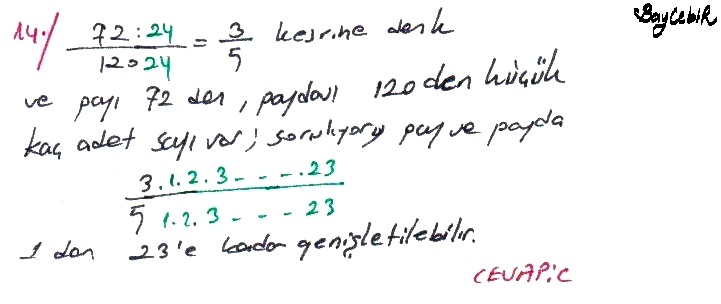 BayCebiR
14./ 72:24 / 120 24 = 3/5 kesrine denk
ve payı 72 den, paydası 120 den küçük
kaç adet sayı var; soruluyor pay ve payda
3.1.2.3 - - - .23
5 1.2.3 - - - 23
1 den 23'e kadar genişletilebilir.
CEVAP:C